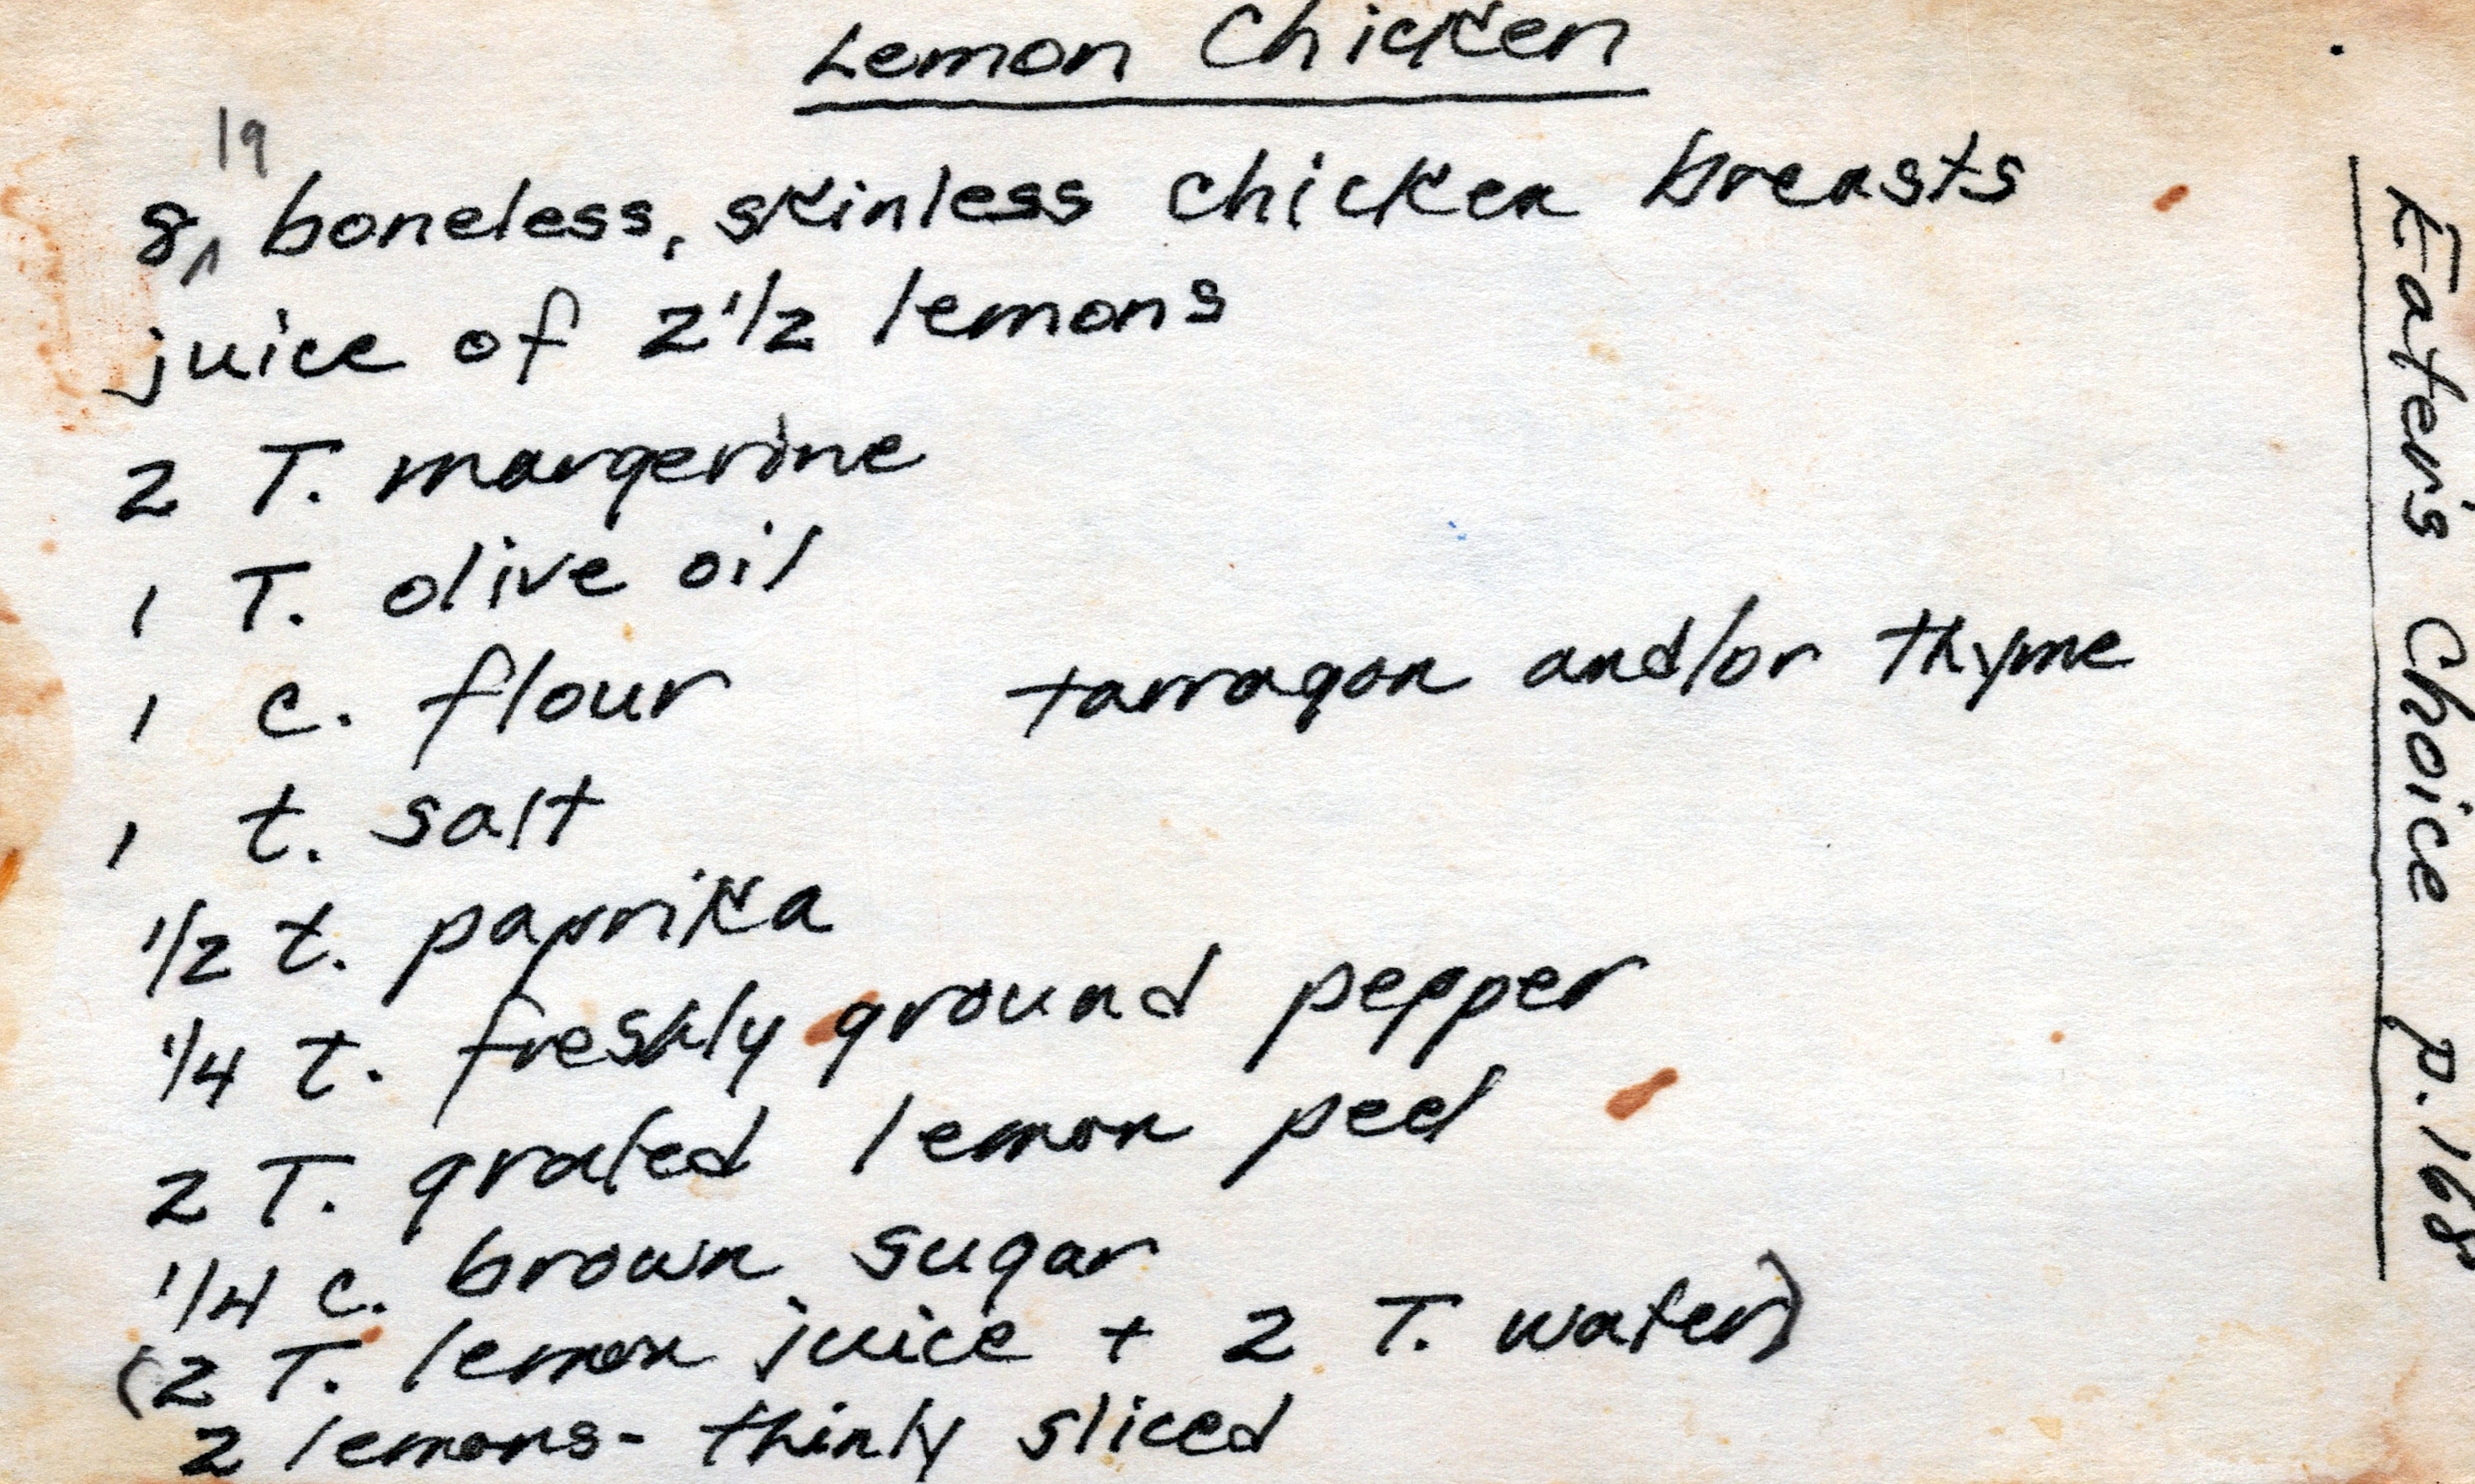 Lemon Chicken
8 lg boneless, skinless chicken breasts
juice of 2 1/2 lemons
2 T. margerine
1 T. olive oil
1 c. flour tarragon and/or thyme
1 t. salt
1/2 t. paprika
1/4 t. freshly ground pepper
2 T. grated lemon peel
1/4 c. brown sugar
(2 T. lemon juice + 2 T. water)
2 lemons - thinly sliced
Eater's Choice p. 168